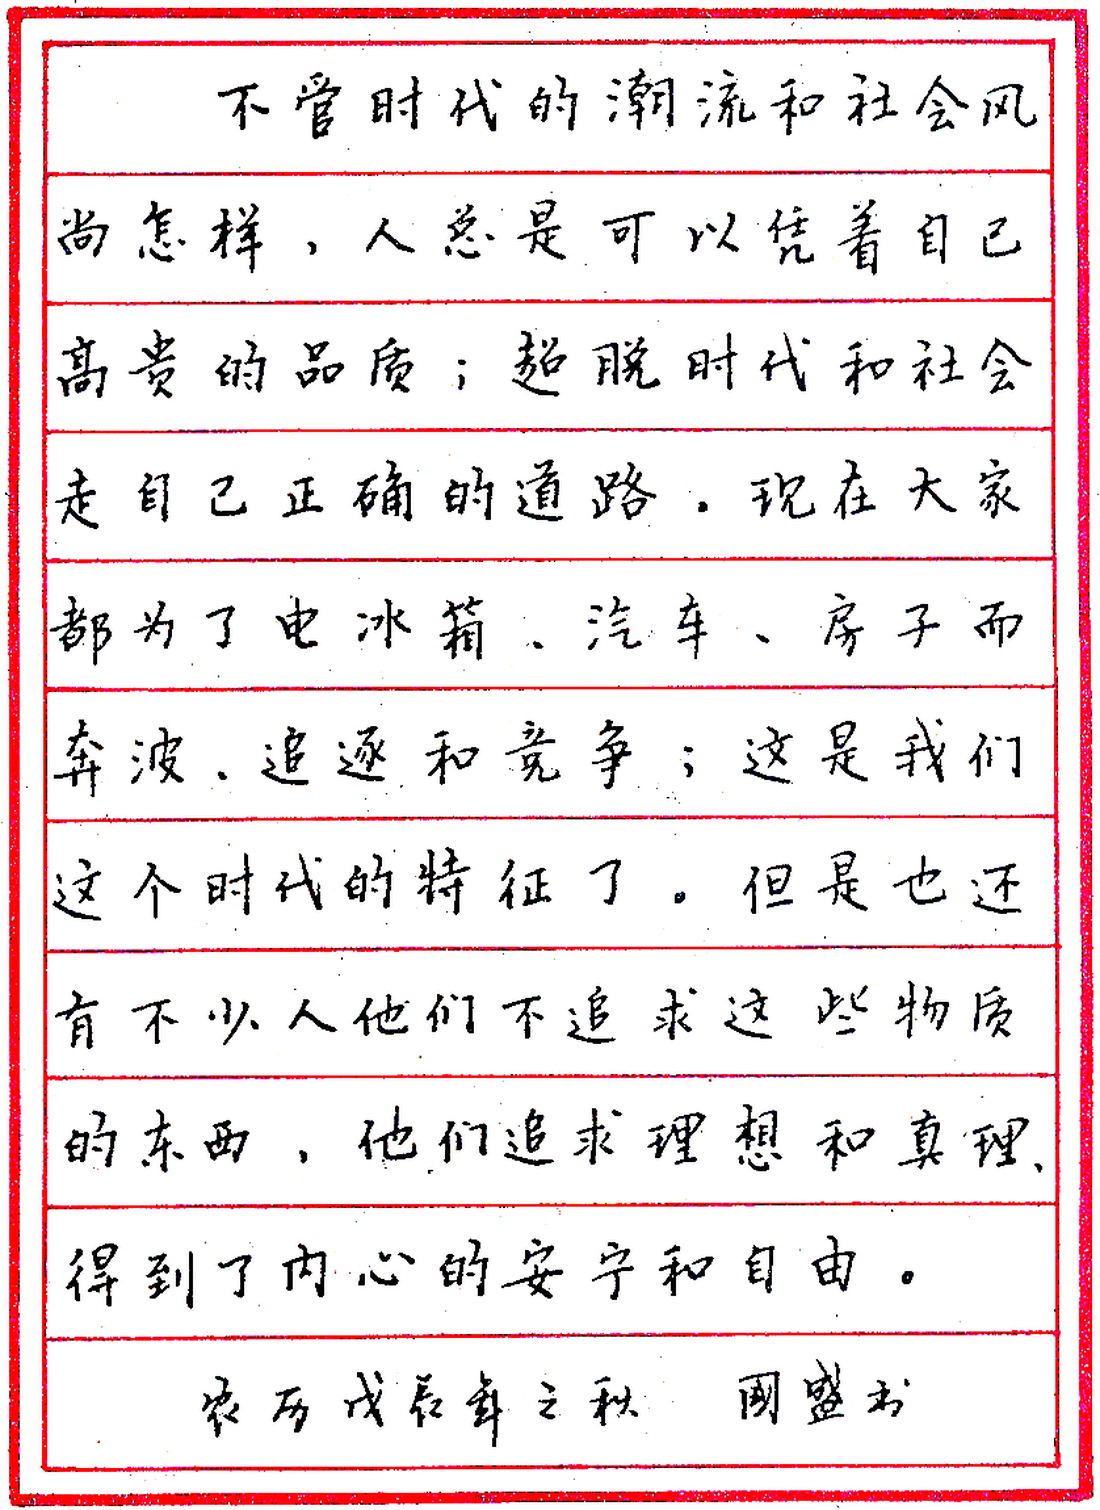 不管时代的潮流和社会风
尚怎样，人总是可以凭着自己
高贵的品质；超脱时代和社会
走自己正确的道路。现在大家
都为了电冰箱、汽车、房子而
奔波、追逐和竞争；这是我们
这个时代的特征了。但是也还
有不少人他们不追求这些物质
的东西，他们追求理想和真理、
得到了内心的安宁和自由。
农历戊辰年之秋 國盛书